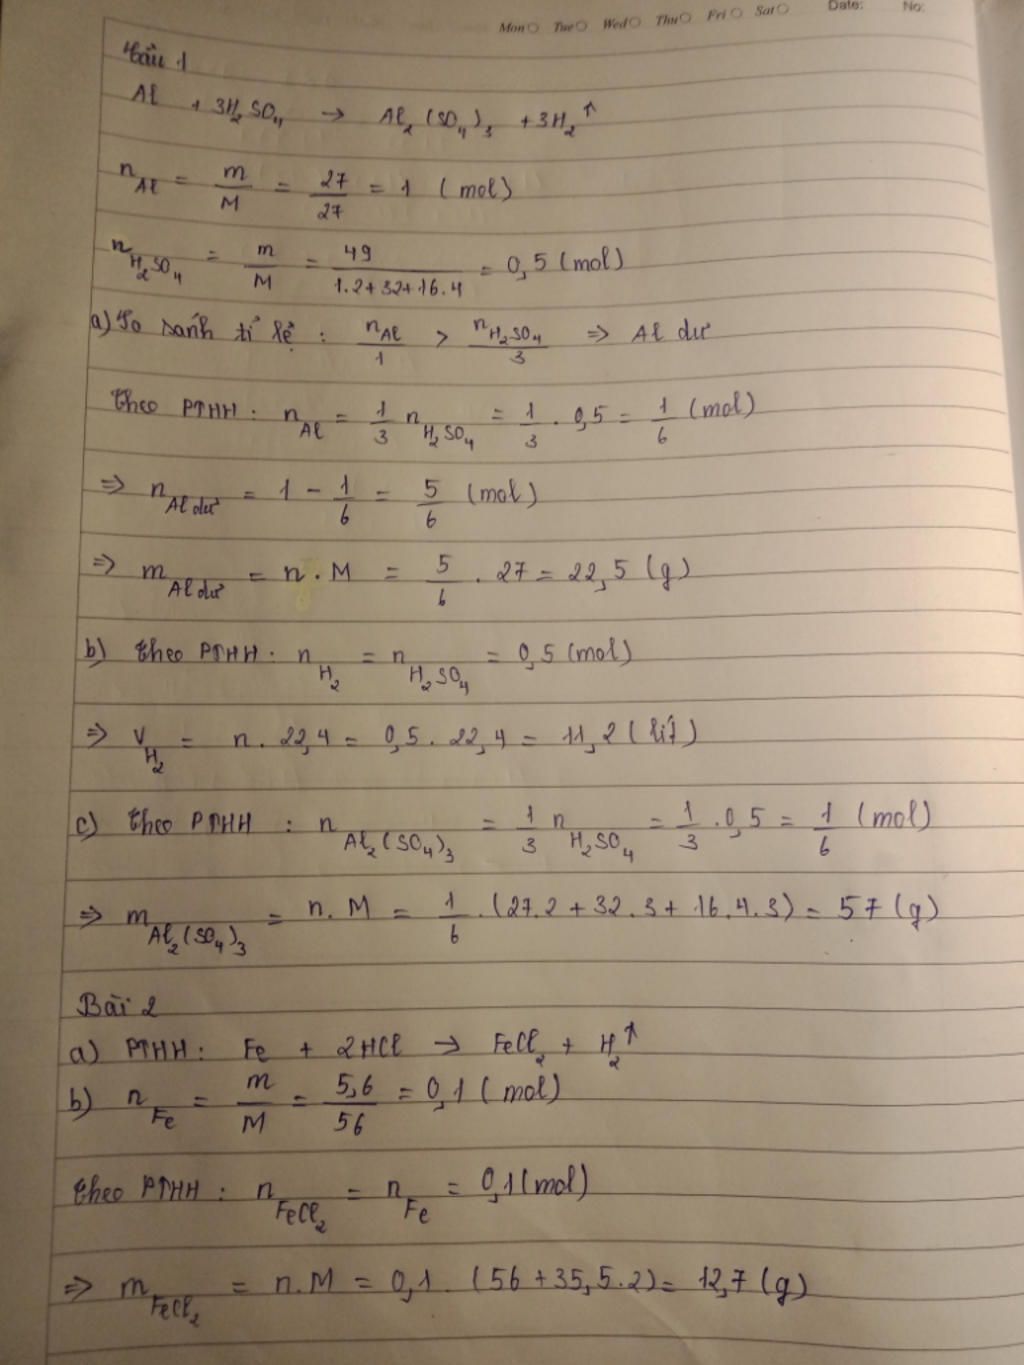 Mon Tue Wed Thu Fri Sat Date: No:
Câu 1
Al + 3H₂SO₄ → Al₂(SO₄)₃ + 3H₂↑
n_Al = m/M = 27/27 = 1 (mol)
n_H₂SO₄ = m/M = 49/(1.2+32+16.4) = 0,5 (mol)
a) So sánh tỉ lệ : n_Al/1 > n_H₂SO₄/3 ⇒ Al dư
theo PTHH : n_Al = 1/3 n_H₂SO₄ = 1/3 . 0,5 = 1/6 (mol)
⇒ n_Al dư = 1 - 1/6 = 5/6 (mol)
⇒ m_Al dư = n . M = 5/6 . 27 = 22,5 (g)
b) theo PTHH : n_H₂ = n_H₂SO₄ = 0,5 (mol)
⇒ V_H₂ = n . 22,4 = 0,5 . 22,4 = 11,2 (lít)
c) theo PTHH : n_Al₂(SO₄)₃ = 1/3 n_H₂SO₄ = 1/3 . 0,5 = 1/6 (mol)
⇒ m_Al₂(SO₄)₃ = n . M = 1/6 . (27.2 + 32.3 + 16.4.3) = 57 (g)
Bài 2
a) PTHH : Fe + 2HCl → FeCl₂ + H₂↑
b) n_Fe = m/M = 5,6/56 = 0,1 (mol)
theo PTHH : n_FeCl₂ = n_Fe = 0,1 (mol)
⇒ m_FeCl₂ = n . M = 0,1 . (56 + 35,5.2) = 12,7 (g)